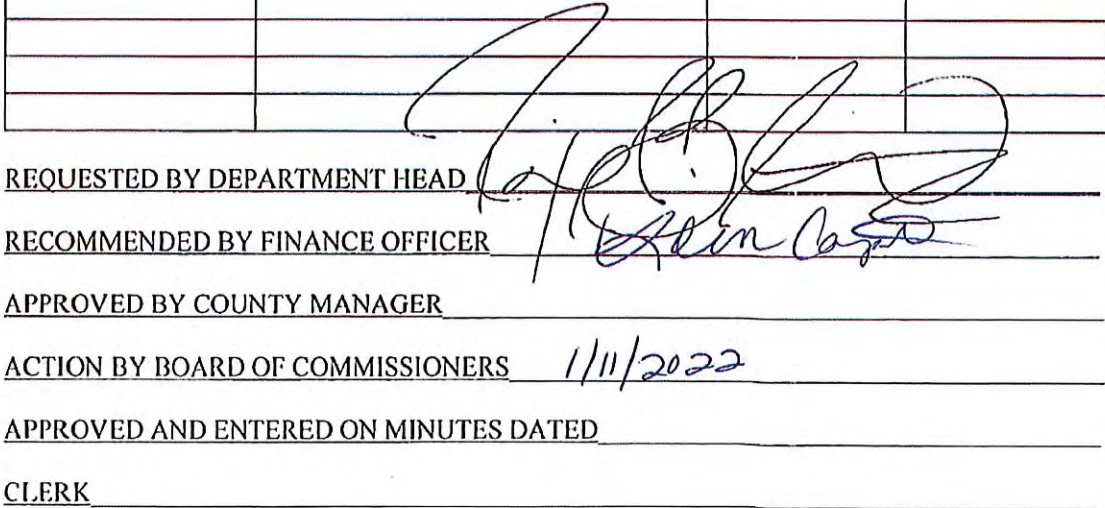 REQUESTED BY DEPARTMENT HEAD
RECOMMENDED BY FINANCE OFFICER
APPROVED BY COUNTY MANAGER
ACTION BY BOARD OF COMMISSIONERS 1/11/2022
APPROVED AND ENTERED ON MINUTES DATED
CLERK